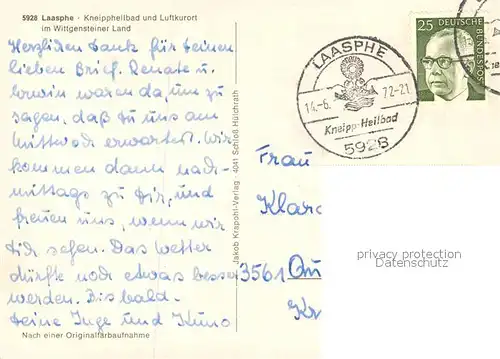 5928 Laasphe - Kneippheilbad und Luftkurort
im Wittgensteiner Land
Herzlichen Dank für Deinen
lieben Brief. Renate u.
Erwin waren da, um zu
sagen, daß Du uns am
Mittwoch erwartest. Wir
kommen dann nach-
mittags zu Dir, und
freuen uns, wenn wir
Dich sehen. Das Wetter
dürfte noch etwas besser
werden. Bis bald.
Deine Inge und Kuno
Nach einer Originalfarbaufnahme
Jakob Krapohl-Verlag - 4041 Schloß Hülchrath
LAASPHE
14.-6. 72-21
Kneipp-Heilbad
5928
25 DEUTSCHE
BUNDESPOST
Frau
Klara
3561
privacy protection
Datenschutz
Kr